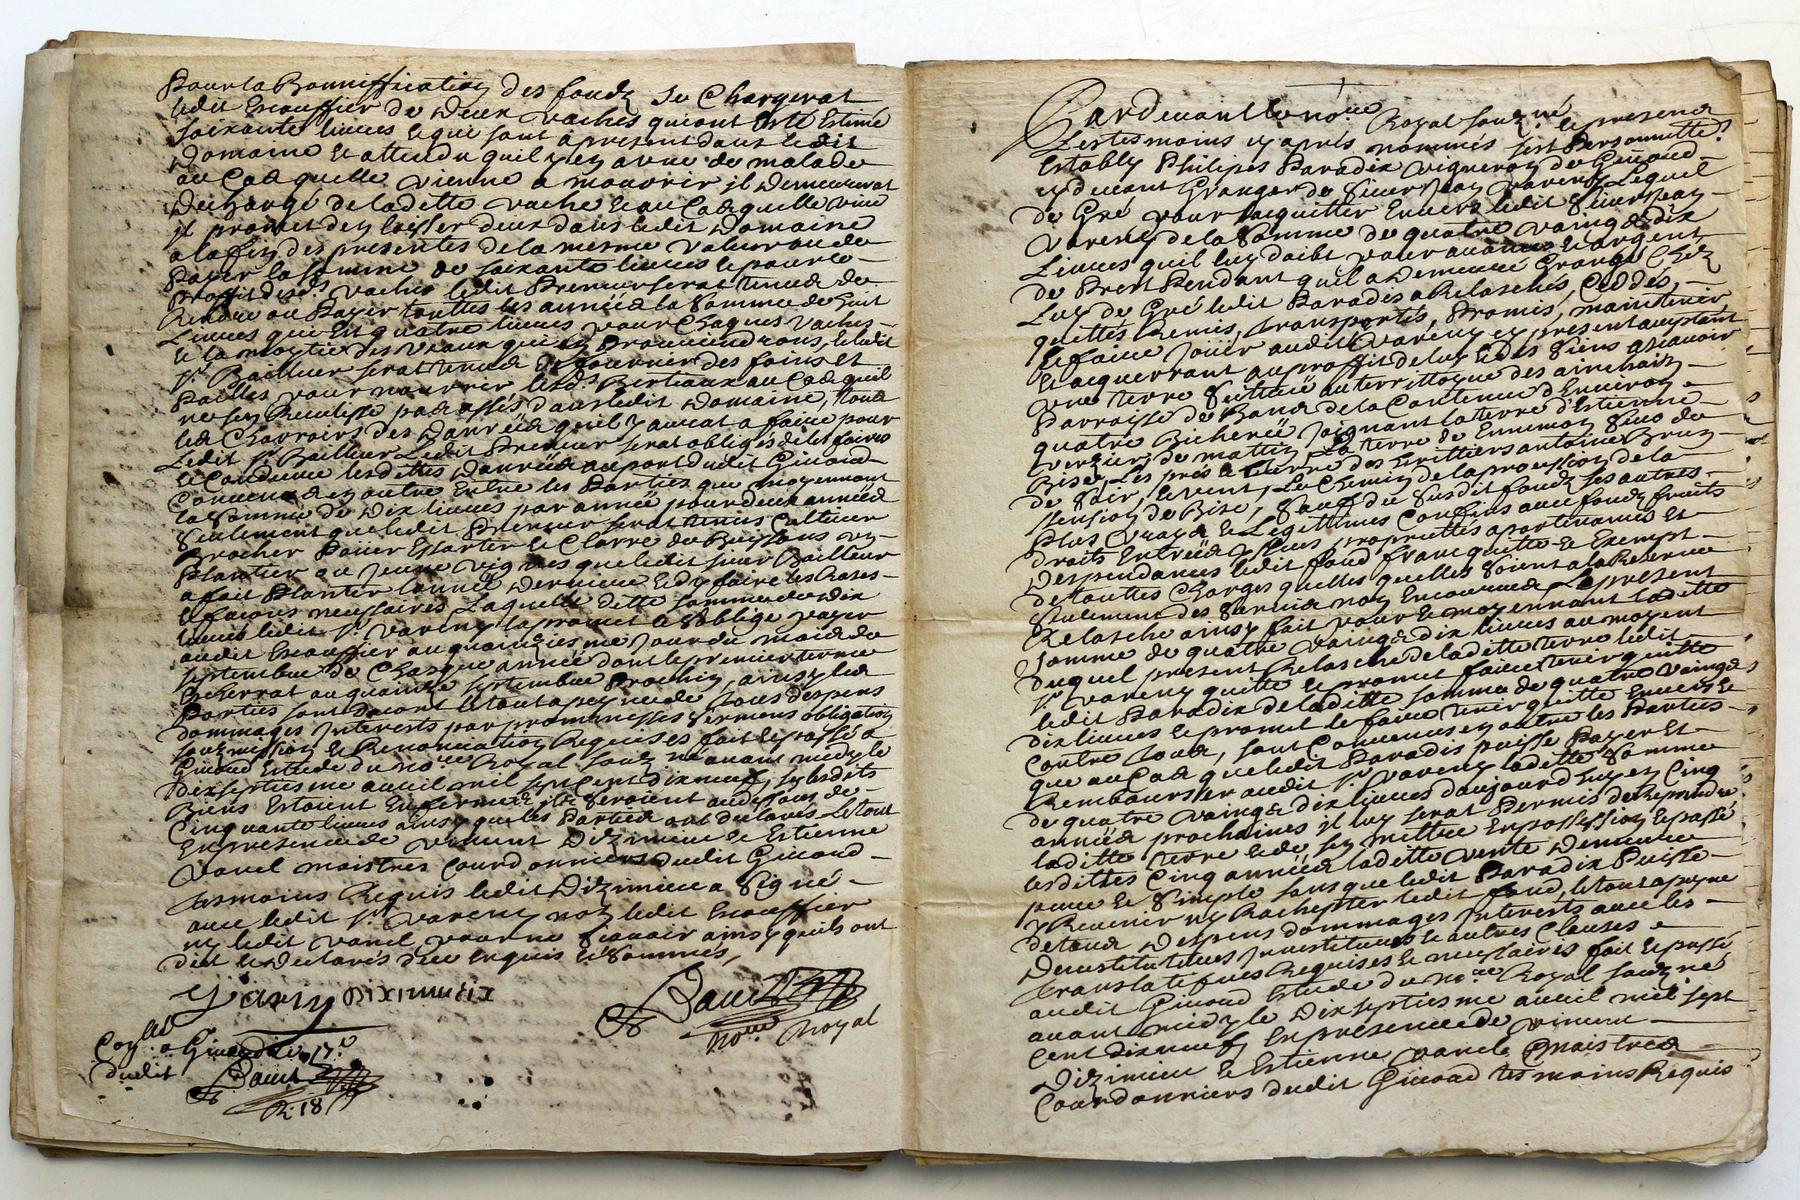 Pour la Bonniffication des fondz se Chargerat
ledit Escouffier de deux vaches qui ont esté Estimé
soixante livres et qui sont a present dans ledit
Domaine et attendu quil y en a une de malade
au Cas quelle vienne a mourir il demeurerat
decharge de ladette vache et au Cas quelle vive
il promet den laisser deux dans ledit Domaine
a la fin des presentes de la mesme valleur ou de
payer la somme de soixante livres et pour le
proffit desd. vaches ledit Preneur serat tenu de
Rendre ou Payer touttes les années la somme de huit
Livres qui est quatre livres pour Chaques vaches
et la moytié des veaux qui en proviendrons, ledit
Sr. Bailleur serat tenu de fournir des foins et
Pailles pour nourrir lesds. Bestiaux au Cas quil
ne sen Recuillisse pas assés dans ledit Domaine, tous
les Charrois des danrées quil y aurat a faire pour
Ledit Sr. Bailleur Ledit Preneur serat obligés de les faires
et Conduire lesdittes danrées au port dudit Givord
Convenu en outre Entre les Parties que moyennant
la somme de dix livres par année pour deux années
seulement que ledit Preneur serat tenus Cultiver
Brocher Paver Essarter et Clorre de Buyssons un
Plantier ou jeune vignes que ledit sieur Bailleur
a fait Planter lannée derniere et d'y faire les Choses
et façons necessaires Laquelle ditte somme de dix
livres ledit Sr. Vareny la promet et s'oblige payer
audit Escouffier au quainziesme Jour du mois de
septembre de Chasque année dont le premier terme
Escherrat au quainze septembre Prochain, ainsy les
Parties sont dacord le tout a peyne de tous despens
dommages Interests par promesses sermens obligation
soubmission et Renonciation Requises fait et passé a
Givord Estude du nore. Royal souzné avant midy le
dixseptiesme avril mil sept cent dixneuf, sy lesdits
Biens Estoient Enfermés ils seroient audessous de
Cinquante livres ainsy que les Parties ont declarés Le tout
En presence de vincent Dizimieu et Estienne
Vanel maistres Courdonniers dudit Givord
tesmoins Requis ledit Dizimieu a signé
avec ledit Sr. Vareny non ledit Escouffier
ny ledit Vanel pour ne scavoir ainsy quils ont
dit et declarés de ce enquis et sommés,
Vareny Diximieux
nore. Royal
Con.lé a Givord le 17e
dudit
R. 18
Pardevant le nore. Royal souzné
et tesmoins cy aprés nommés sest Personnellet.
Estably Philipes Paradix vigneron de Givord
cy devant Granger de sieur Jean Vareny Lequel
de Gré pour sacquitter Envers ledit sieur Jean
Vareny de la somme de quatre vaingt dix
Livres quil luy doibt pour avances et argent
de Prest Pendant quil a demeuré Granger Chez
Luy de Gré ledit Parades a Relaschés, Ceddés,
quittés Remis, transportés, Promis, maintenir
et faire Joüir audit Vareny cy present acceptant
et acquerrant au proffit de luy et des siens ascavoir
une terre sittuée au territtoyre des
Parroisse de Bans de la Contenue d'Environ
quatre Bicherée Joignant la terre d'Estienne
Verzier de matin la terre de Ennemon
Bise, Les prés et terre des heritiers antoine Brun
de soir, le vent, Le Chemin de la procession de la
assension de Bise, sauf du susdit fondz ses autres
Plus vrays et Legittimes Confins avec fondz fruits
droits Entrées yssues proprietés apartenances et
Despendances ledit fond franc quitte et Exempt
de touttes Charges quelles quelles soient a la Reserve
seulement des servis non Encourus Le present
Relasche ainsy fait pour et moyennant laditte
somme de quatre vaingt dix livres au moyent
duquel present Relasche de ladette terre ledit
Sr. Vareny quitte et promet faire tenir quitte
ledit Paradix de laditte somme de quatre vaingt
dix livres et promet le faire tenir quitte Envers et
contre tous, sont Convenus en outre les Parties
que au Cas que ledit Paradis puisse Payer Et
Rembourser audit Sr. Vareny ladette somme
de quatre vaingt dix livres d'aujourd'huy en Cinq
années prochaines il luy serat Permis de Reprendre
laditte terre et de sen mettre En possession et passé
lesdittes Cinq années laditte vente demeure
pure et simple sans que ledit Paradix Puisse
y Revenir ny Rachepter ledit fond, le tout a peyne
de tous despens dommages Interests avec les
Devestitutives Investitives et autres Clauses
translatives Requises et necessaires fait et passé
audit Givord Estude du nore. Royal souzné
avant midy le dixseptiesme avril mil sept
cent dixneuf, En presence de vincent
Dizimieu et Estienne Vanel Maistres
Courdonniers dudit Givord tesmoins Requis